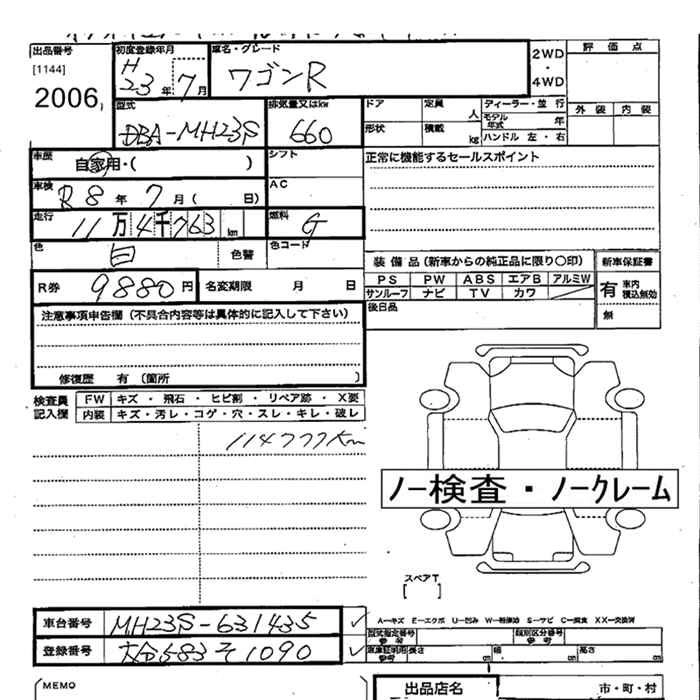 出品番号 初度登録年月 車名・グレード 2WD・4WD 評価点
[1144] H23年7月 ワゴンR
2006, 型式 排気量又はkw ドア 定員 人 ディーラー・並行 外装 内装
DBA-MH23S 660 形状 積載 kg モデル年式 年
ハンドル 左・右
車歴 自家用・( ) シフト 正常に機能するセールスポイント
車検 R8年7月( 日) AC
走行 11万4千763km 燃料 G
色 白 色替 色コード
装備品(新車からの純正品に限り〇印) 新車保証書
R券 9880円 名変期限 月 日 PS PW ABS エアB アルミW 有 車内積込無効
サンルーフ ナビ TV カワ
注意事項申告欄(不具合内容等は具体的に記入して下さい) 後日品 無
修復歴 有(箇所 )
検査員記入欄 FW キズ・飛石・ヒビ割・リペア跡・X要
内装 キズ・汚レ・コゲ・穴・スレ・キレ・破レ
114777km
ノー検査・ノークレーム
スペアT
[ ]
車台番号 MH23S-631435 ✓ A-キズ E-エクボ U-凹み W-補修跡 S-サビ C-腐食 XX-交換済
型式指定番号 参考 類別区分番号 参考
登録番号 大分583そ1090 ✓ 車庫証明用参考 長さ cm 幅 cm 高さ cm
(MEMO 出品店名 市・町・村